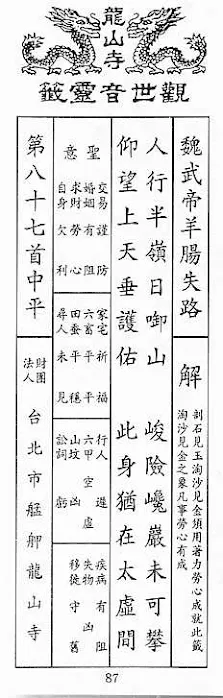 龍山寺
觀世音靈籤
魏武帝羊腸失路
解
剖石見玉淘沙見金須用著力勞心成就此籤
淘沙見金之象凡事勞心有成
人行半嶺日啣山 峻險巉巖未可攀
仰望上天垂護佑 此身猶在太虛間
聖意
交易謹防
婚姻有阻
求財勞心
自身欠利
家宅祈福
六畜平平
田蠶平穩
尋人未見
行人遲
六甲空虛
山墳凶
訟詞虧
疾病有阻
失物凶
移徙守舊
第八十七首中平
財團法人 台北市艋舺龍山寺
87